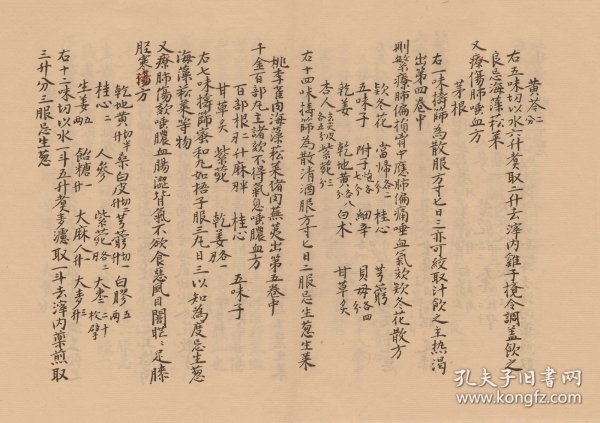 黄芩分
右五味切以水六升煮取二升去滓内雞子攪令調盖飲之
良忌海藻菘菜
又療傷肺唾血方
茅根
右一味擣篩為散服方寸匕日三亦可絞取汁飲之主熱渴
出第四卷中
則繁療肺偏損胷中應肺偏痛唾血氣欬欵冬花散方
欵冬花 當歸各六分 桂心 芎藭
五味子 附子七分炮 細辛 貝母各四分
乾姜 乾地黄各八分 白术 甘草炙
杏人 紫菀三分
右十四味擣篩為散清酒服方寸匕日二服忌生葱生菜
桃李雀肉海藻菘菜猪肉蕪荑出第五卷中
千金百部丸主諸欬不得氣息唾膿血方
百部根二 升麻 桂心 五味子
甘草炙 紫菀 乾姜各
右七味擣篩蜜和丸如梧子服三丸日三以知為度忌生葱
海藻菘菜等物
又療肺傷欬唾膿血腸澀背氣不欲食惡風目闇䀮〻足膝
脛寒湯方
乾地黄半升切 桑白皮二升切 芎藭一升切 白膠五两
桂心二 人參 紫菀各二 大棗二十枚擘
生姜五两 飴糖一升 大麻人一升 大麥三升
右十二味切以水一斗五升煮麥濾取一斗去滓内藥煎取
三升分三服忌生葱
孔夫子旧书网
www.kongfz.com